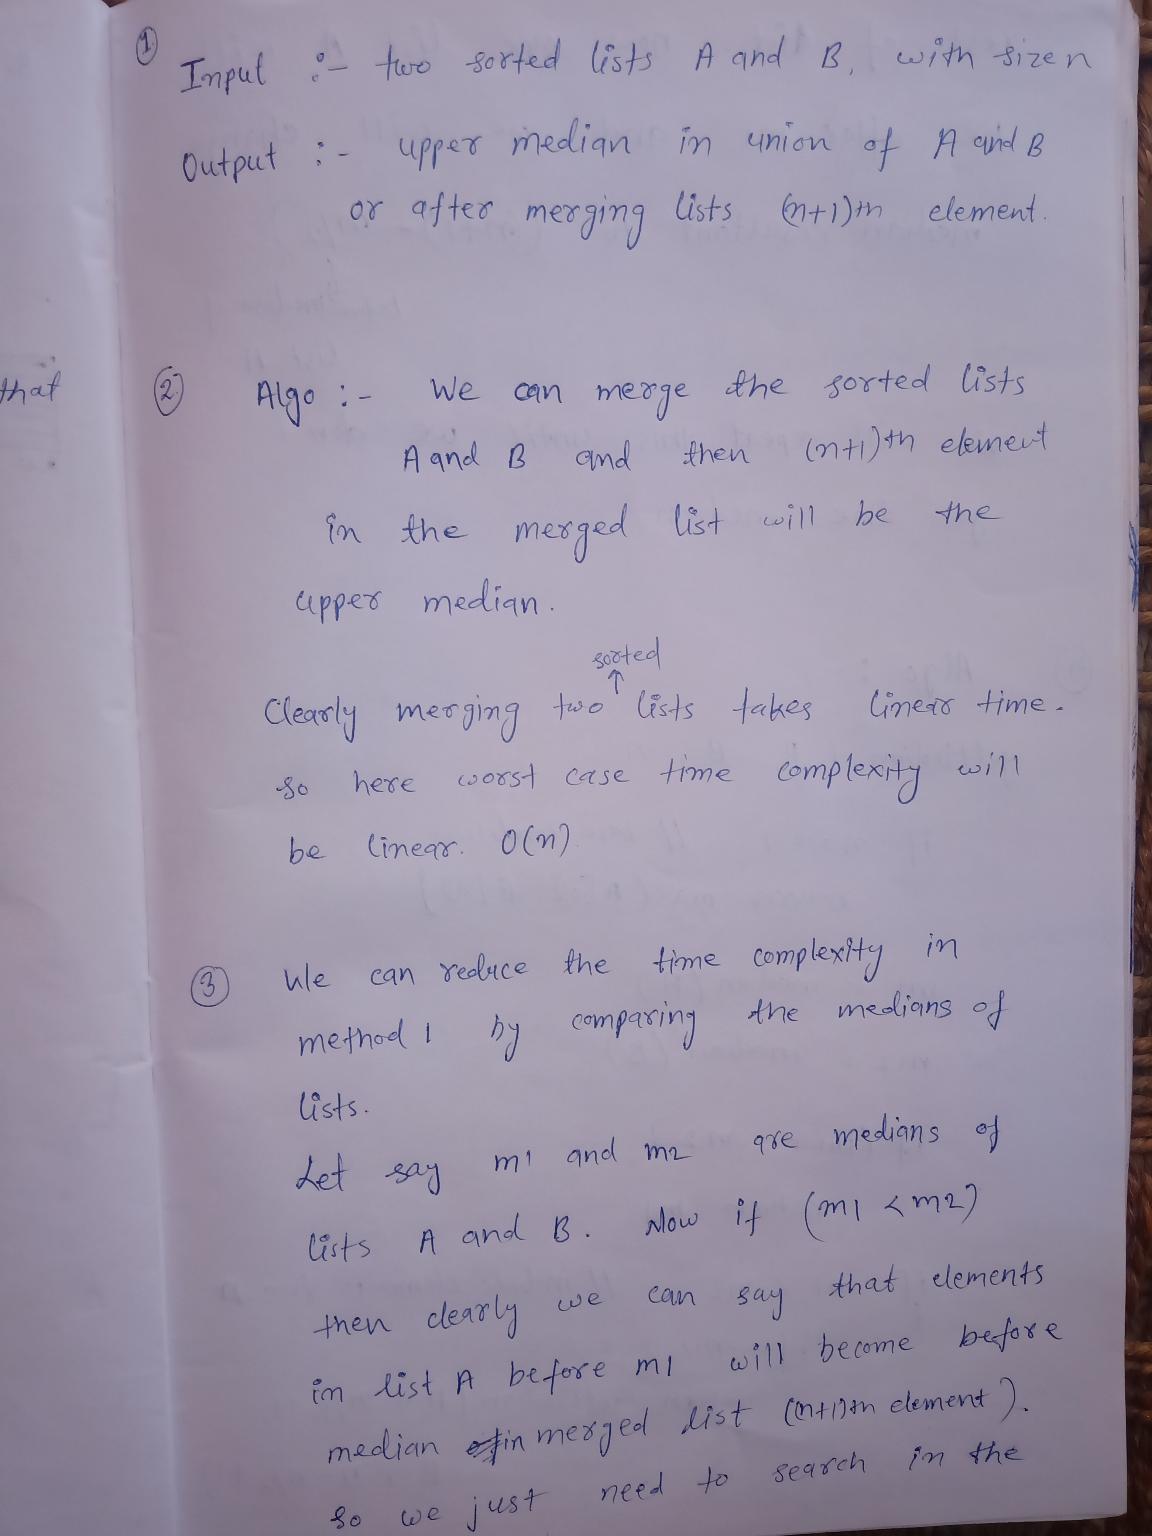 ①
Input :- two sorted lists A and B, with size n
Output :- upper median in union of A and B
or after merging lists (n+1)th element.
that
② Algo :- We can merge the sorted lists
A and B and then (n+1)th element
in the merged list will be the
upper median.
sorted
↑
Clearly merging two lists takes linear time.
so here worst case time complexity will
be linear. O(n)
③ We can reduce the time complexity in
method 1 by comparing the medians of
lists.
Let say m1 and m2 are medians of
lists A and B. Now if (m1 < m2)
then clearly we can say that elements
in list A before m1 will become before
median in merged list (n+1)th element).
so we just need to search in the